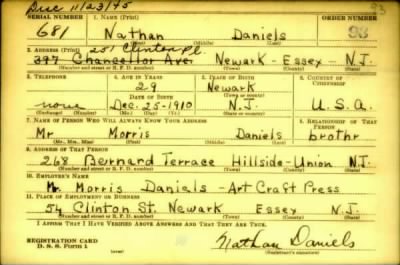 Disc 11/23/45
SERIAL NUMBER 1. NAME (Print) ORDER NUMBER
681 Nathan Daniels 93
(First) (Middle) (Last)
2. ADDRESS (Print) 251 Clinton Pl.
397 Chancellor Ave. Newark - Essex - N.J.
(Number and street or R. F. D. number) (Town) (County) (State)
3. TELEPHONE 4. AGE IN YEARS 5. PLACE OF BIRTH 6. COUNTRY OF CITIZENSHIP
29 Newark
DATE OF BIRTH (Town or county)
none Dec. 25-1910 N.J. U.S.A.
(Mo.) (Day) (Yr.) (State or country)
7. NAME OF PERSON WHO WILL ALWAYS KNOW YOUR ADDRESS 8. RELATIONSHIP OF THAT PERSON
Mr Morris Daniels brothr
(Mr., Mrs., Miss) (First) (Middle) (Last)
9. ADDRESS OF THAT PERSON
268 Bernard Terrace Hillside-Union N.J.
(Number and street or R. F. D. number) (Town) (County) (State)
10. EMPLOYER'S NAME
Mr. Morris Daniels - Art Craft Press
11. PLACE OF EMPLOYMENT OR BUSINESS
54 Clinton St. Newark Essex N.J.
(Number and street or R. F. D. number) (Town) (County) (State)
I AFFIRM THAT I HAVE VERIFIED ABOVE ANSWERS AND THAT THEY ARE TRUE.
REGISTRATION CARD
D. S. S. Form 1 Nathan Daniels
(Registrant's signature)